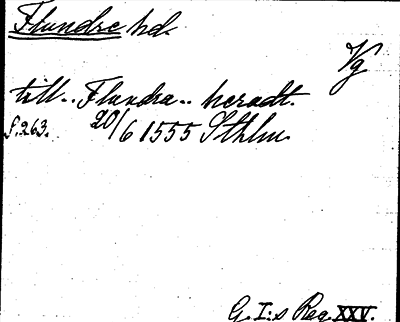 Flundre hd.
Vg
till.. Flundra.. heradt.
f. 263. 20/6 1555 Sthlm
G. I:s Reg. XXV.